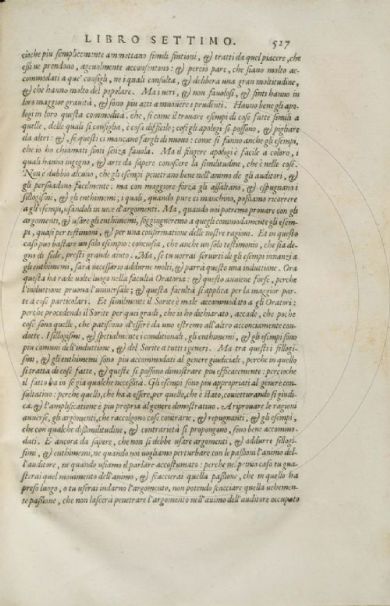 LIBRO SETTIMO. 527
cioche piu semplicemente ammettano simili fintioni, & tratti da quel piacere, che
essi ne prendono, ageuolmente acconsentono: & percio pare, che siano molto ac-
commodati a que' consigli, ne i quali consulta, & delibera una gran moltitudine,
& che hanno molto del popolare. Ma i ueri, & non fauolosi, & finti hanno in
loro maggior grauità, & sono piu atti a muouere i prudenti. Hanno bene gli apo-
logi in loro questa commodità, che, si come il trouare esempi di cose fatte simili a
quelle, delle quali si consiglia, è cosa difficile; cosi gli apologi si possono, & pigliare
da altri: & se questi ci mancano fargli di nuouo: come si fanno anche gli esempi,
che io ho chiamati finti senza fauola. Ma il fingere apologi è facile a coloro, i
quali hanno ingegno, & arte da sapere conoscere la similitudine, che è nelle cose.
Non è dubbio alcuno, che gli esempi penetrano bene nell'animo de gli auditori, &
gli persuadono facilmente: ma con maggior forza gli assaltano, & espugnano i
sillogismi, & gli enthimemi; i quali, quando pure ci manchino, possiamo ricorrere
a gli esempi, usandoli in uece d'argomenti. Ma, quando noi potremo prouare con gli
argomenti, & usare gli enthimemi, soggiugneremo a quegli commodamente gli esem-
pi, quasi per testimoni, & per una confermatione delle nostre ragioni. Et in questo
caso puo bastare un solo esempio: conciosia, che anche un solo testimonio, che sia de-
gno di fede, presti grande aiuto. Ma, se tu uorrai seruirti de gli esempi innanzi a
gli enthimemi, sarà necessario addurne molti, & parrà questa una induttione. Ora
questa ha rade uolte luogo nella facultà Oratoria: & questo auuiene forse, perche
l'induttione pruoua l'uniuersale; & questa facultà si applica per la maggior par-
te a cose particolari. Et similmente il Sorite è male accommodato a gli Oratori:
perche procedendo il Sorite per quei gradi, che io ho dichiarato, accade, che poche
cose sono quelle, che patiscono d'essere da uno estremo all'altro acconciamente con-
dutte. I sillogismi, & spetialmente i conditionali, gli enthimemi, & gli esempi sono
piu communi dell'induttione, & del Sorite a tutti i generi. Ma tra questi i sillogi-
smi, & gli enthimemi sono piu accommodati al genere giudiciale, perche in quello
si tratta di cose fatte, & queste si possono dimostrare piu efficacemente: percioche
il fatto ha in se già qualche necessità. Gli esempi sono piu appropriati al genere con-
sultatiuo: perche quello, che ha a essere, per quello, che è stato, conietturando si giudi-
ca. & l'amplificatione è piu propria al genere dimostratiuo. A riprouare le ragioni
auuerse, gli argomenti, che raccolgono cose contrarie, & repugnanti, & gli esempi,
che con qualche dissimilitudine, & contrarietà si propongono, sono bene accommo-
dati. E ancora da sapere, che non si debbe usare argomenti, & addurre sillogi-
smi, & enthimemi, ne quando uogliamo perturbare con le passioni l'animo del-
l'auditore, ne quando usiamo il parlare accostumato: perche nel primo caso tu gua-
starai quel mouimento dell'animo, & scaccierai quella passione, che in quello ha
preso luogo, o tu userai indarno l'argomento, non potendo scacciare quella uehemen-
te passione, che non lascerà penetrare l'argomento nell'animo dell'auditore occupato